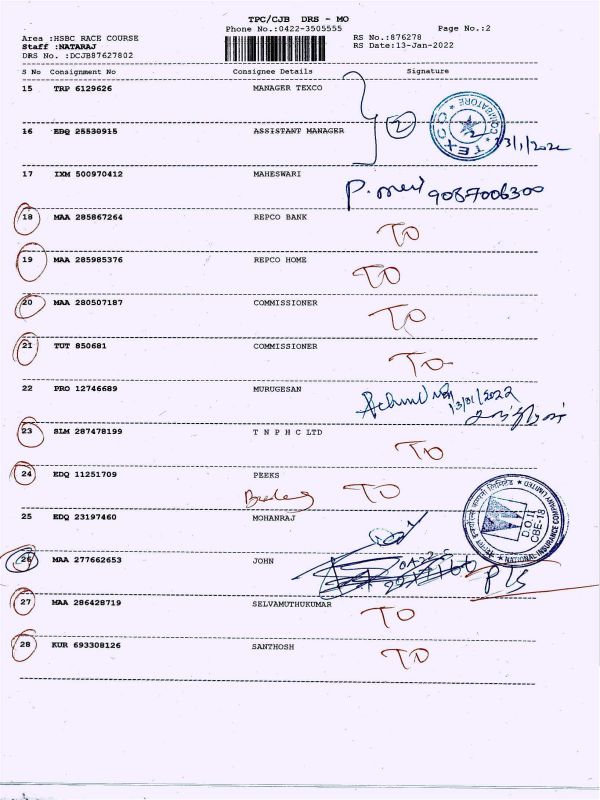 TPC/CJB DRS - MO
Phone No.:0422-3505555 Page No.:2
Area :HSBC RACE COURSE RS No.:876278
Staff :NATARAJ RS Date:13-Jan-2022
DRS No. :DCJB87627802
S No Consignment No Consignee Details Signature
15 TRP 6129626 MANAGER TEXCO
16 EDQ 25530915 ASSISTANT MANAGER
2
TEXCO COIMBATORE
13/1/2022
17 IXM 500970412 MAHESWARI
9087006300
18 MAA 285867264 REPCO BANK
TO
19 MAA 285985376 REPCO HOME
TO
20 MAA 280507187 COMMISSIONER
TO
21 TUT 850681 COMMISSIONER
TO
22 PRO 12746689 MURUGESAN
13/01/2022
23 SLM 287478199 T N P H C LTD
TO
24 EDQ 11251709 PEEKS
TO
25 EDQ 23197460 MOHANRAJ
D.O. II
CBE-18
NATIONAL INSURANCE COMPANY LIMITED
26 MAA 277662653 JOHN
27 MAA 286428719 SELVAMUTHUKUMAR
TO
28 KUR 693308126 SANTHOSH
TO